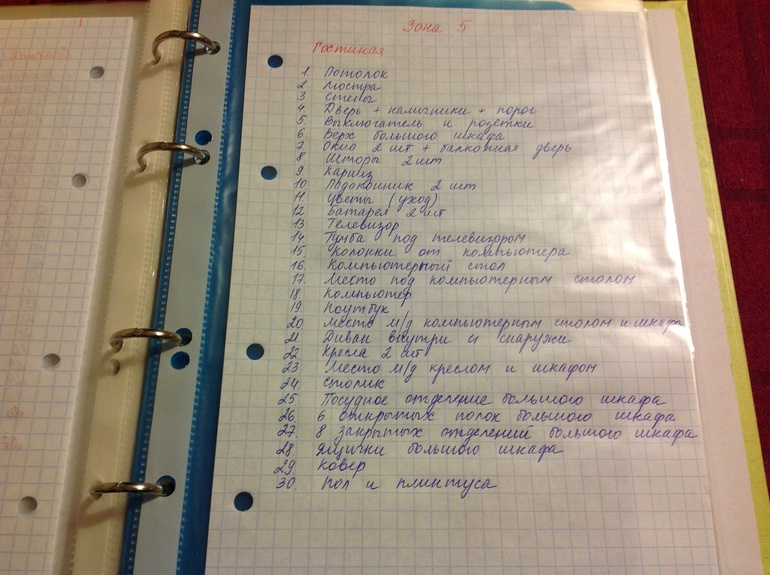 Зона 5
Гостиная
1. Потолок
2 Люстра
3 Стены
4. Дверь + наличники + порог
5 Выключатель и розетки
6 Верх большого шкафа
7. Окно 2 шт + балконная дверь
8 Шторы 2 шт
9. Карниз
10 Подоконник 2 шт
11 Цветы (уход)
12 Батарея 2 шт
13 Телевизор
14 Тумба под телевизором
15. Колонки от компьютера
16. Компьютерный стол
17. Место под компьютерным столом
18 Компьютер
19. Ноутбук
20 Место м/д компьютерным столом и шкафом
21 Диван внутри и снаружи
22 Кресла 2 шт
23 Место м/д креслом и шкафом
24. Столик
25. Посудное отделение большого шкафа
26. 6 открытых полок большого шкафа
27. 8 закрытых отделений большого шкафа
28. Ящички большого шкафа
29. Ковёр
30. Пол и плинтуса